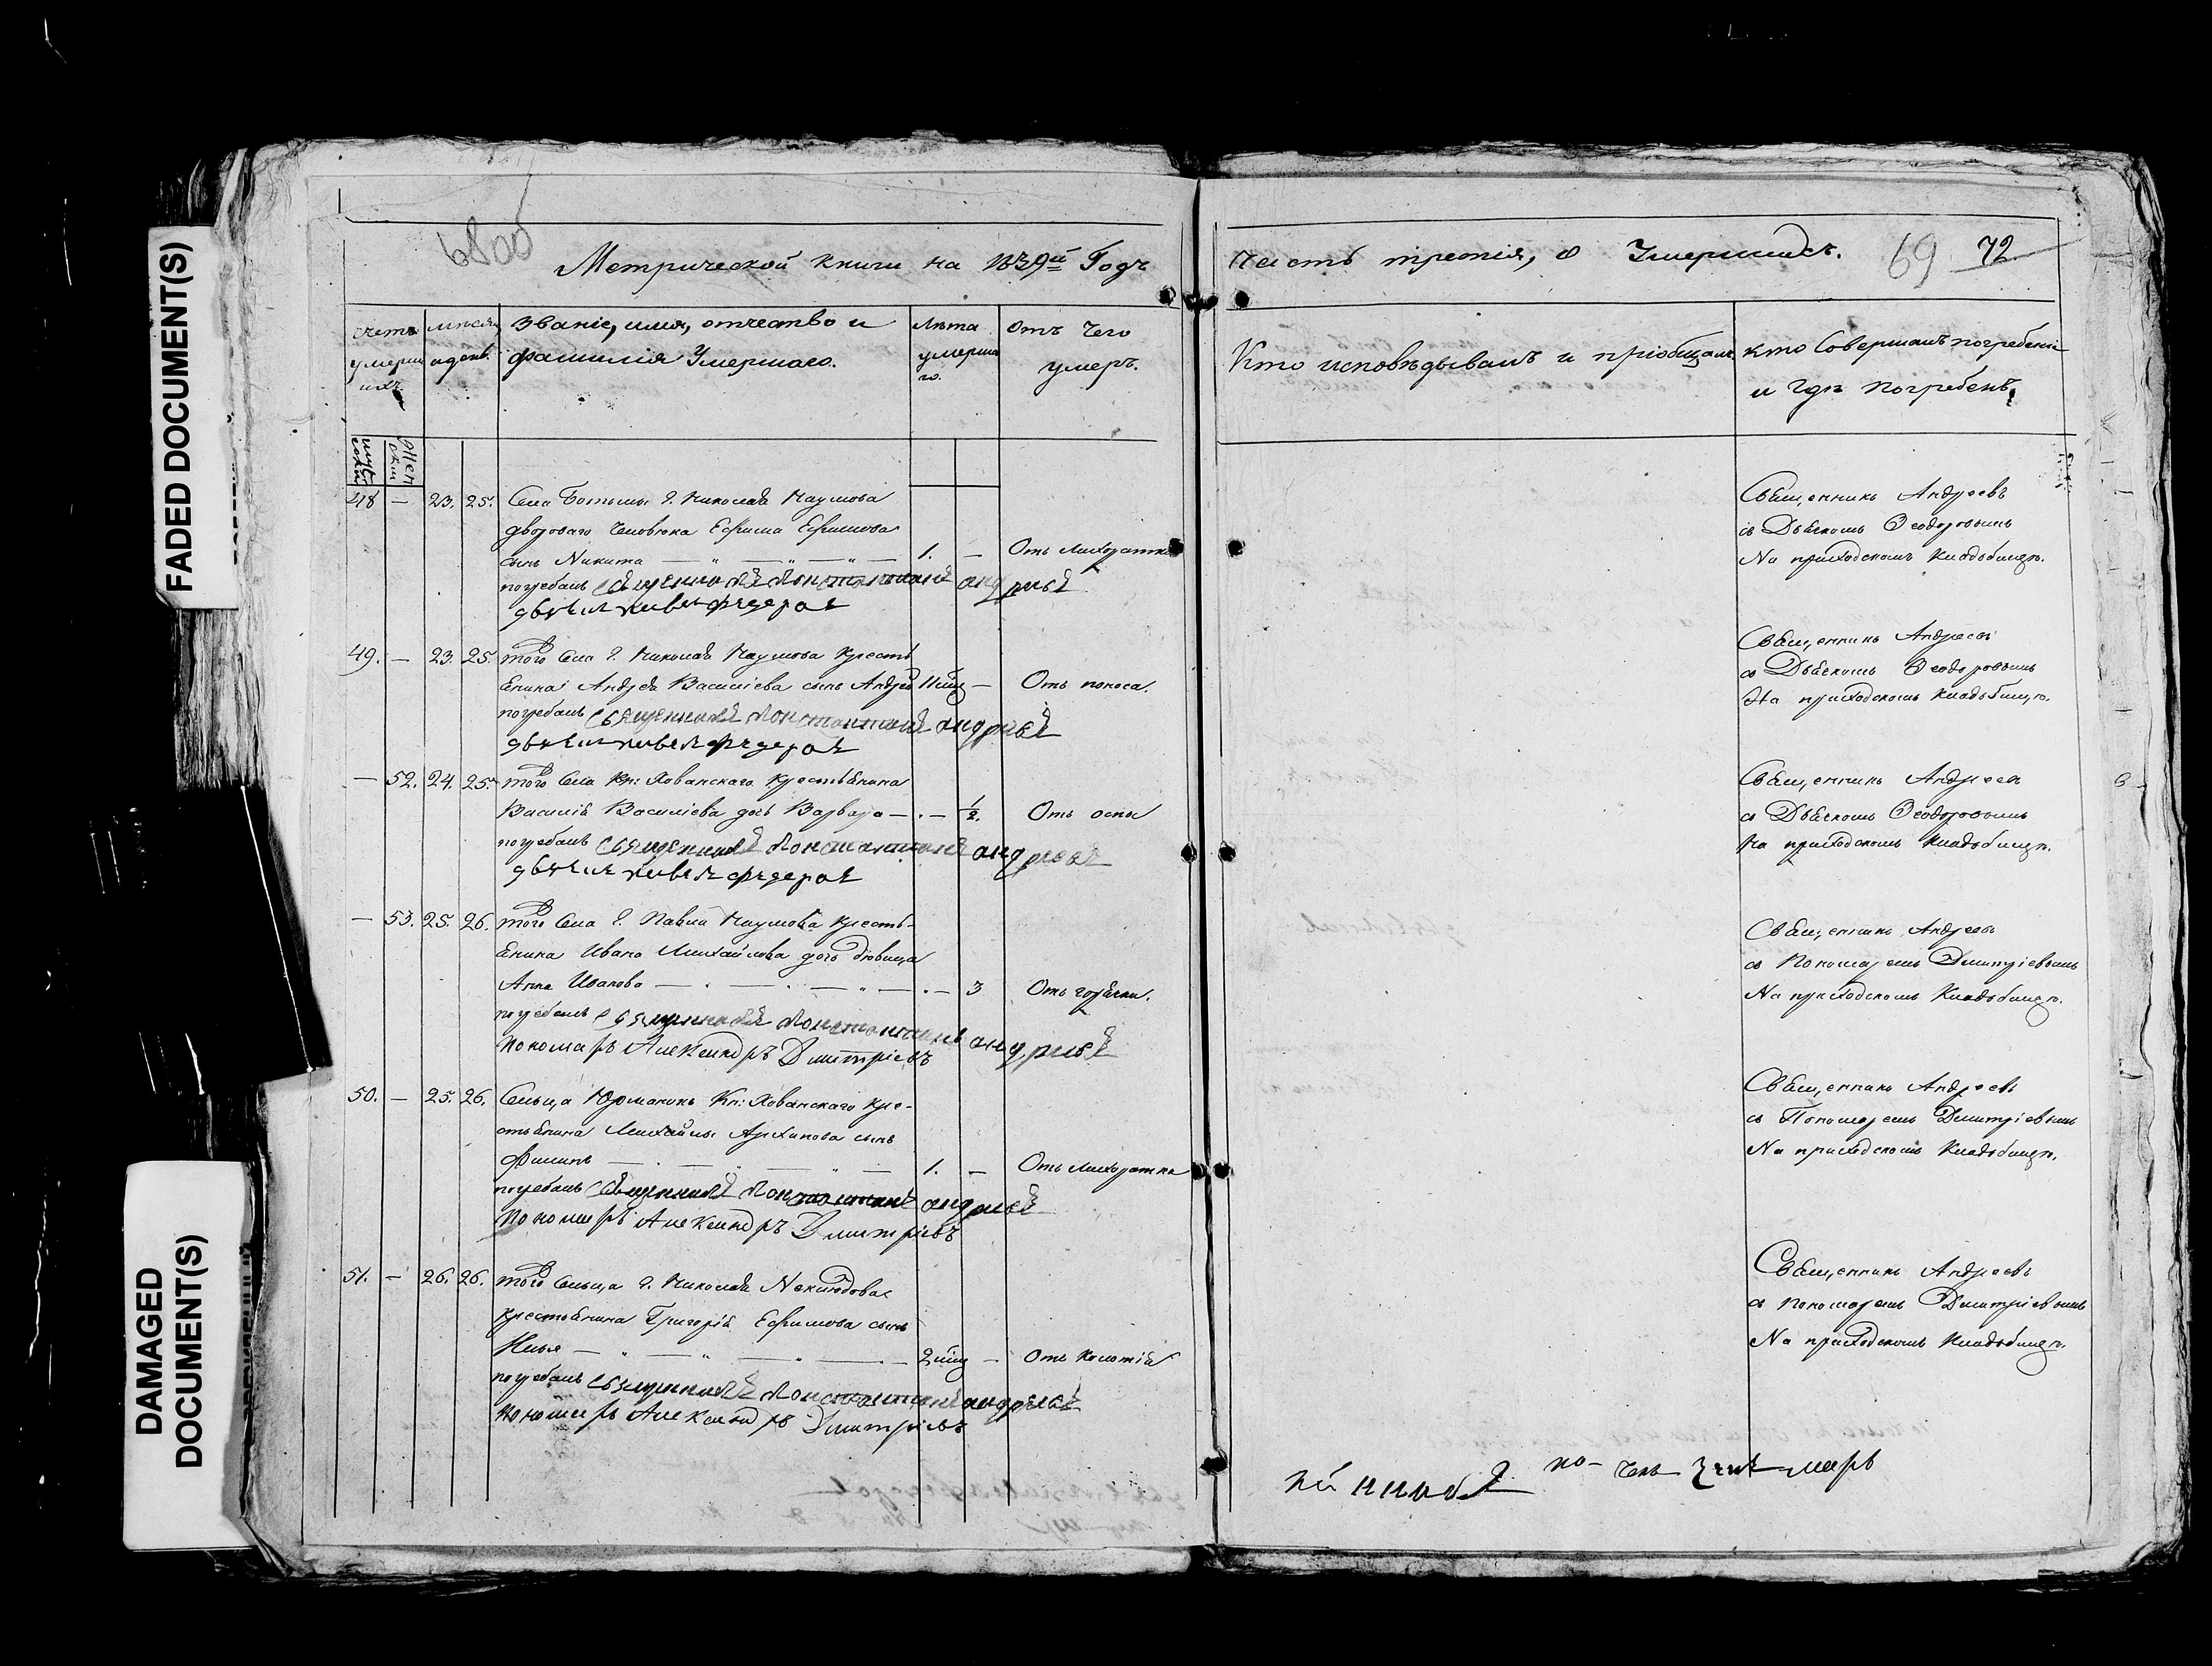 FADED DOCUMENT(S)
DAMAGED
DOCUMENT(S)
68об
Метрической книги на 1839й Годъ
Часть третія, о Умершихъ.
69 72
счетъ умершихъ
мѣсяцъ и день.
Званіе, имя, отчество и
фамилія Умершаго.
Лѣта
умерша
го.
Отъ чего
умеръ.
Кто исповѣдывалъ и пріобщалъ
кто Совершалъ погребеніе
и гдѣ погребенъ.
48 — 23. 25. Села Г. Николая Наумова
двороваго человѣка Ефима Ефимова
сынъ Никита — 1. — Отъ лихоратки
погребалъ священникъ Константинъ андреевъ
Священникъ Андреевъ
съ Дьячкомъ Ѳеодоровымъ
На приходскомъ кладбищѣ.
49. — 23. 25. того Села Г. Николая Наумова Кресть
янина Андрея Василіева сынъ Андрей — Отъ поноса.
погребалъ священникъ Константинъ андреевъ
Священникъ Андреевъ
съ Дьячкомъ Ѳеодоровымъ
На приходскомъ кладбищѣ.
— 52. 24. 25. того Села Кн: Хованскаго крестьянина
Василія Василіева дочь Варвара — . — ½. Отъ оспы
погребалъ священникъ Константинъ андреевъ
Священникъ Андреевъ
съ Дьячкомъ Ѳеодоровымъ
На приходскомъ кладбищѣ.
— 53. 25. 26. того Села Г. Павла Наумова Кресть-
янина Ивана Михайлова дочь дѣвица
Анна Иванова — . — 3 Отъ горячки.
погребалъ священникъ Константинъ андреевъ
пономарь Александръ Дмитріевъ
Священникъ Андреевъ
съ Пономаремъ Дмитріевымъ
На приходскомъ Кладбищѣ.
50. — 25. 26. Сельца Юрманокъ Кн: Хованскаго кре-
стьянина Михайлы Архипова сынъ
Филипъ — 1. — Отъ лихоратки
погребалъ священникъ Константинъ андреевъ
пономарь Александръ Дмитріевъ
Священникъ Андреевъ
съ Пономаремъ Дмитріевымъ
На приходскомъ Кладбищѣ.
51. — 26. 26. того Сельца Г. Николая Неклюдова
крестьянина Григорія Ефимова сынъ
Илья — — Отъ
погребалъ священникъ Константинъ андреевъ
пономарь Александръ Дмитріевъ
Священникъ Андреевъ
съ пономаремъ Дмитріевымъ
На приходскомъ кладбищѣ.